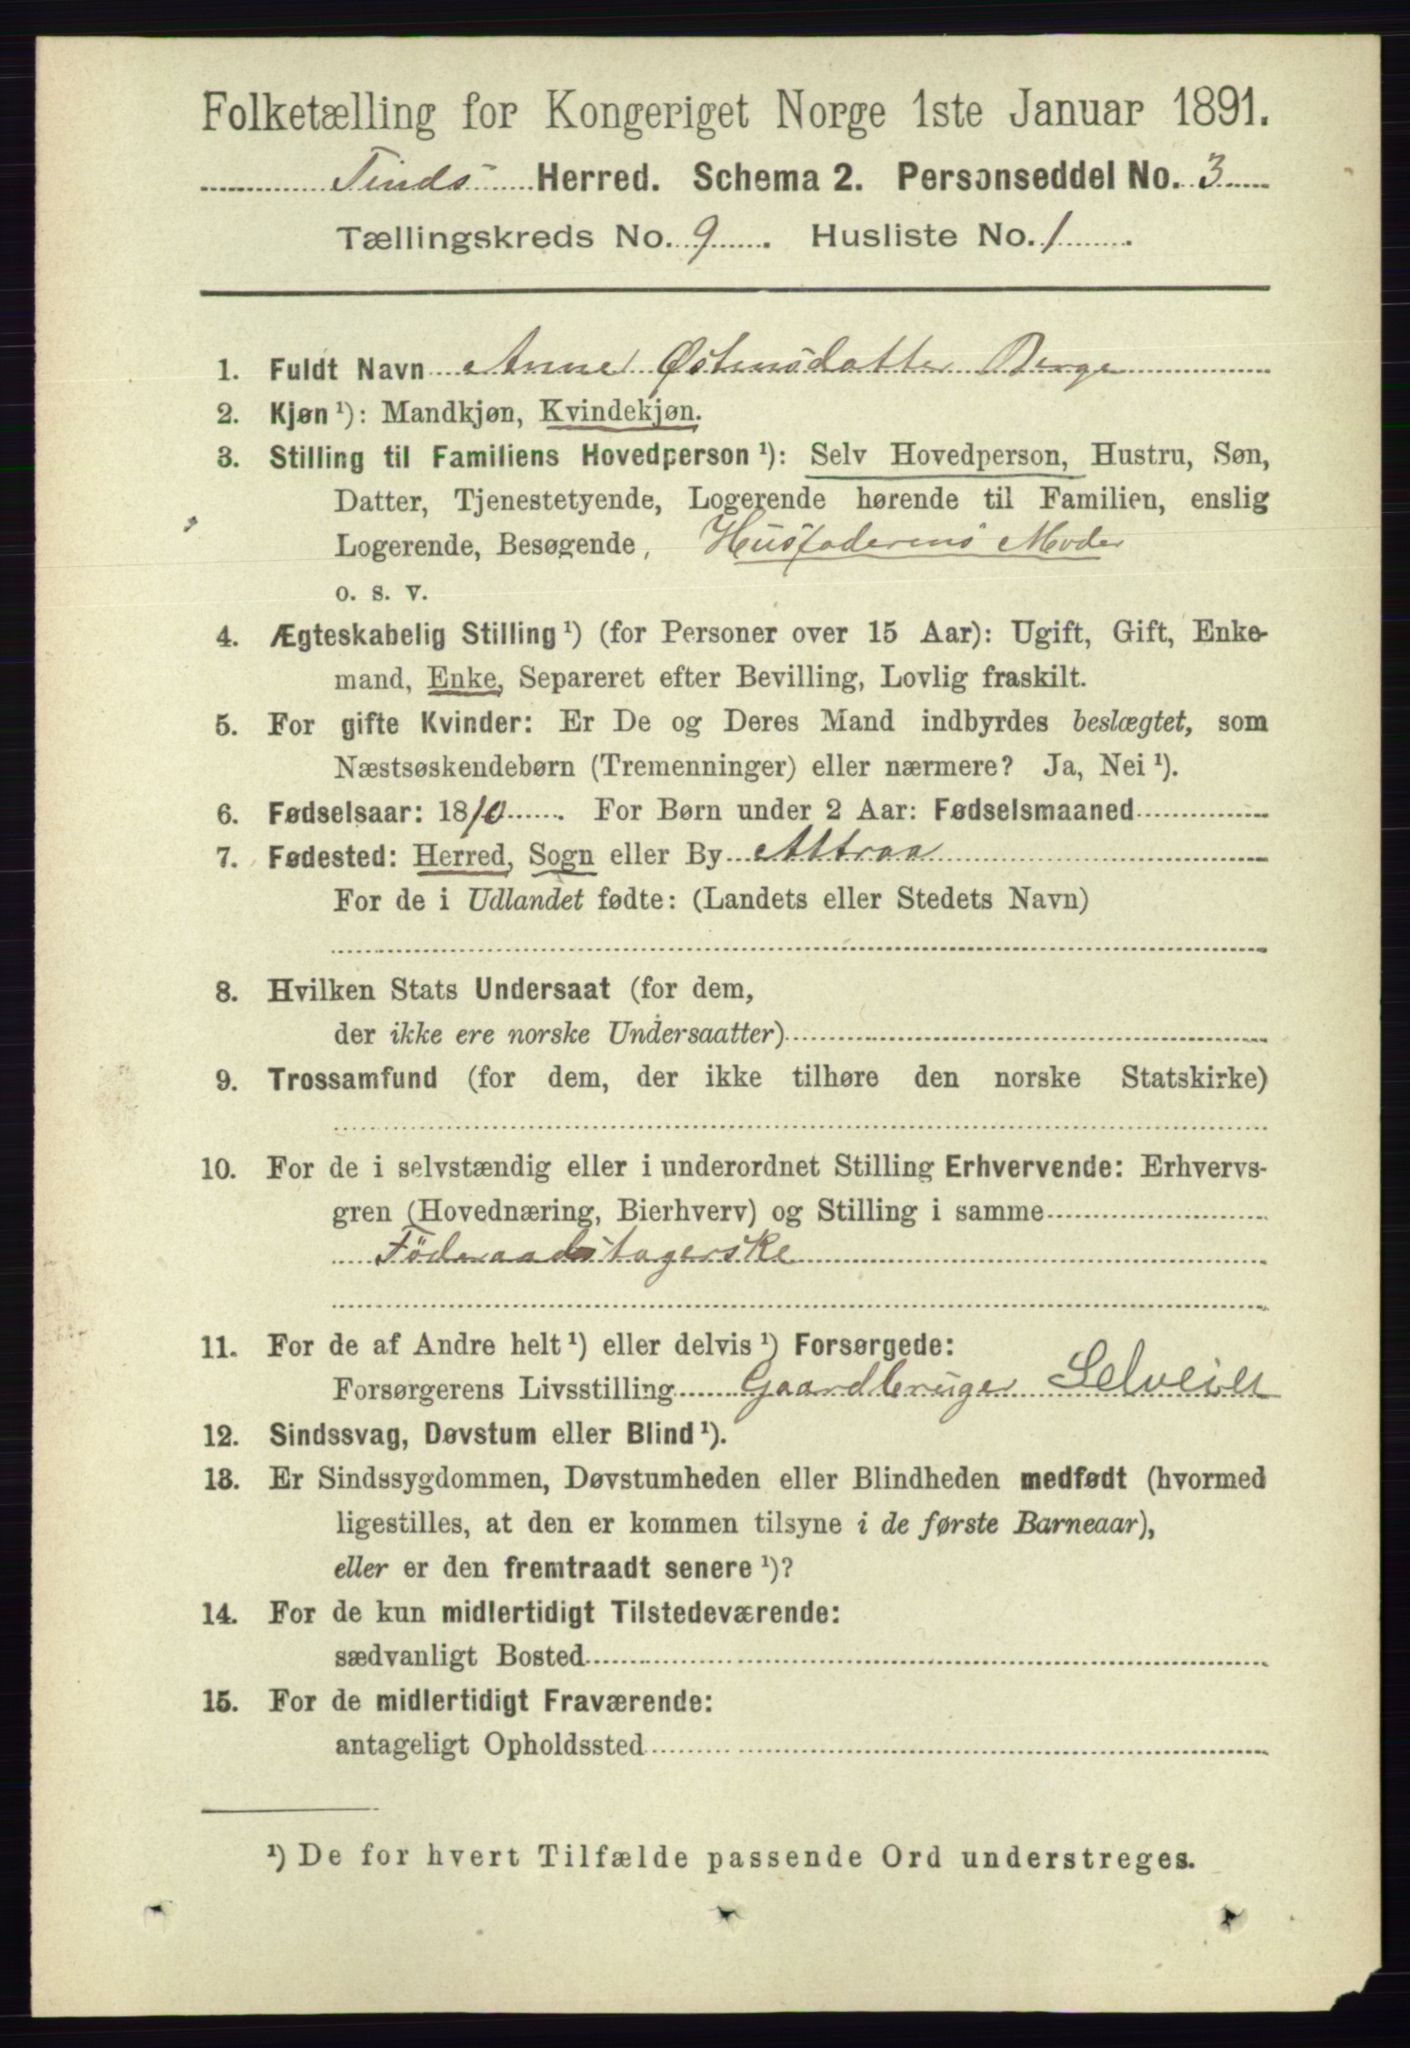 Folketælling for Kongeriget Norge 1ste Januar 1891.
Tinds Herred. Schema 2. Personseddel No. 3
Tællingskreds No. 9. Husliste No. 1.
1. Fuldt Navn Anne Østensdatter Berge
2. Kjøn ¹): Mandkjøn, Kvindekjøn.
3. Stilling til Familiens Hovedperson ¹): Selv Hovedperson, Hustru, Søn,
Datter, Tjenestetyende, Logerende hørende til Familien, enslig
Logerende, Besøgende, Husfaderens Moder
o. s. v.
4. Ægteskabelig Stilling ¹) (for Personer over 15 Aar): Ugift, Gift, Enke-
mand, Enke, Separeret efter Bevilling, Lovlig fraskilt.
5. For gifte Kvinder: Er De og Deres Mand indbyrdes beslægtet, som
Næstsøskendebørn (Tremenninger) eller nærmere? Ja, Nei ¹).
6. Fødselsaar: 1810. For Børn under 2 Aar: Fødselsmaaned
7. Fødested: Herred, Sogn eller By Attraa
For de i Udlandet fødte: (Landets eller Stedets Navn)
8. Hvilken Stats Undersaat (for dem,
der ikke ere norske Undersaatter)
9. Trossamfund (for dem, der ikke tilhøre den norske Statskirke)
10. For de i selvstændig eller i underordnet Stilling Erhvervende: Erhvervs-
gren (Hovednæring, Bierhverv) og Stilling i samme
Föderaadstagerske
11. For de af Andre helt ¹) eller delvis ¹) Forsørgede:
Forsørgerens Livsstilling Gaardbruger Selveier
12. Sindssvag, Døvstum eller Blind ¹).
13. Er Sindssygdommen, Døvstumheden eller Blindheden medfødt (hvormed
ligestilles, at den er kommen tilsyne i de første Barneaar),
eller er den fremtraadt senere ¹)?
14. For de kun midlertidigt Tilstedeværende:
sædvanligt Bosted
15. For de midlertidigt Fraværende:
antageligt Opholdssted
¹) De for hvert Tilfælde passende Ord understreges.